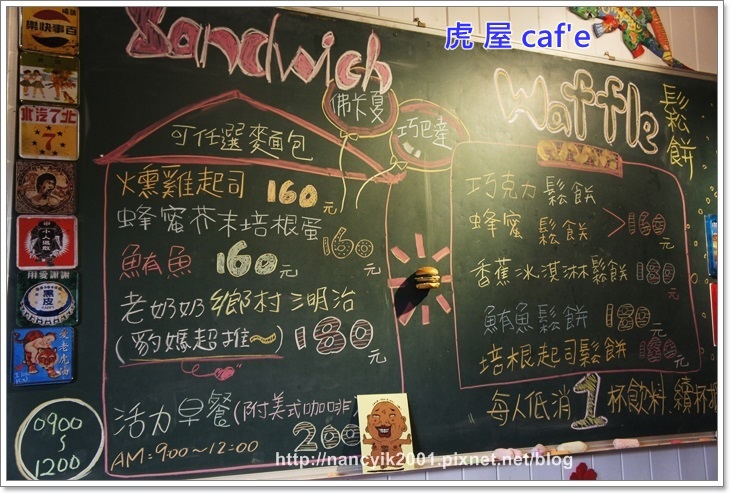 虎屋 caf'e
Sandwich
佛卡夏
巧巴達
可任選麵包
燻雞起司 160元
蜂蜜芥末培根蛋 160元
鮪魚 160元
老奶奶鄉村三明治
(豹媽超推~) 180元
活力早餐(附美式咖啡
200
AM:9:00~12:00
0900
~
1200
Waffle 鬆餅
巧克力鬆餅
蜂蜜鬆餅 > 160元
香蕉冰淇淋鬆餅 180元
鮪魚鬆餅 180元
培根起司鬆餅 160元
每人低消1杯飲料.續杯
百事快樂
7
北汽北7
小人退散
謝謝愛用
黑皮
愛老虎油
http://nancyik2001.pixnet.net/blog